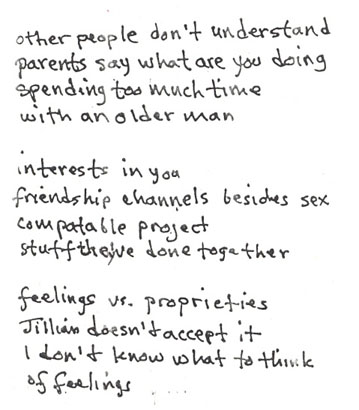 other people don't understand
parents say what are you doing
spending too much time
with an older man
interests in you
friendship channels besides sex
compatable project
stuff they've done together
feelings vs. proprieties
Jillian doesn't accept it
I don't know what to think
of feelings